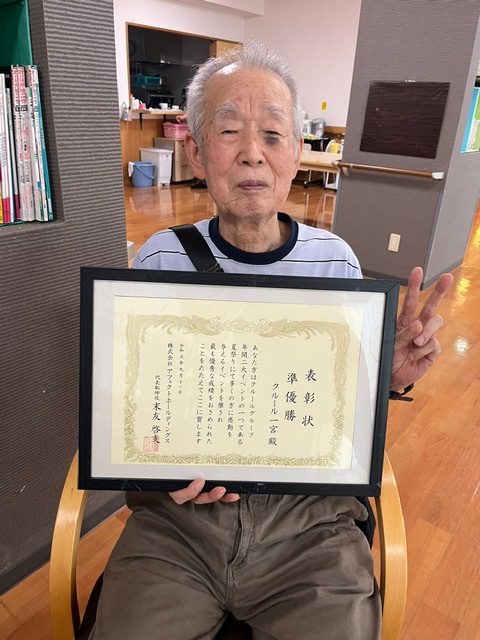 表彰状
準優勝
クルール一宮 殿
あなた方はクルールグループ
年間二大イベントの一つである
夏祭りにて多くの方に感動を
与えるイベントを催され
最も優秀な成績をおさめられた
ことをたたえてここに賞します
令和七年九月十一日
株式会社 アフェクトホールディングス
代表取締役 末友 啓